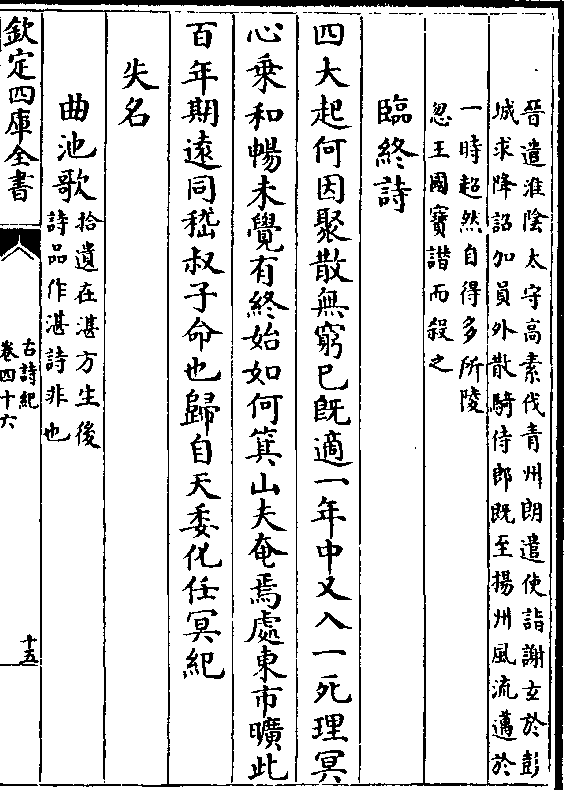 晉遣淮陰太守高素伐青州朗遣使詣謝玄於彭
城求降詔加員外散騎侍郎既至揚州風流邁於
一時超然自得多所陵
忽王國寶譖而殺之
臨終詩
四大起何因聚散無窮已既適一年中又入一死理冥
心乗和暢未覺有終始如何箕山夫奄焉處東市曠此
百年期逺同嵇叔子命也歸自天委化任冥紀
失名
曲池歌
拾遺在湛方生後
詩品作湛詩非也
欽定四庫全書
古詩紀
卷四十六
十五